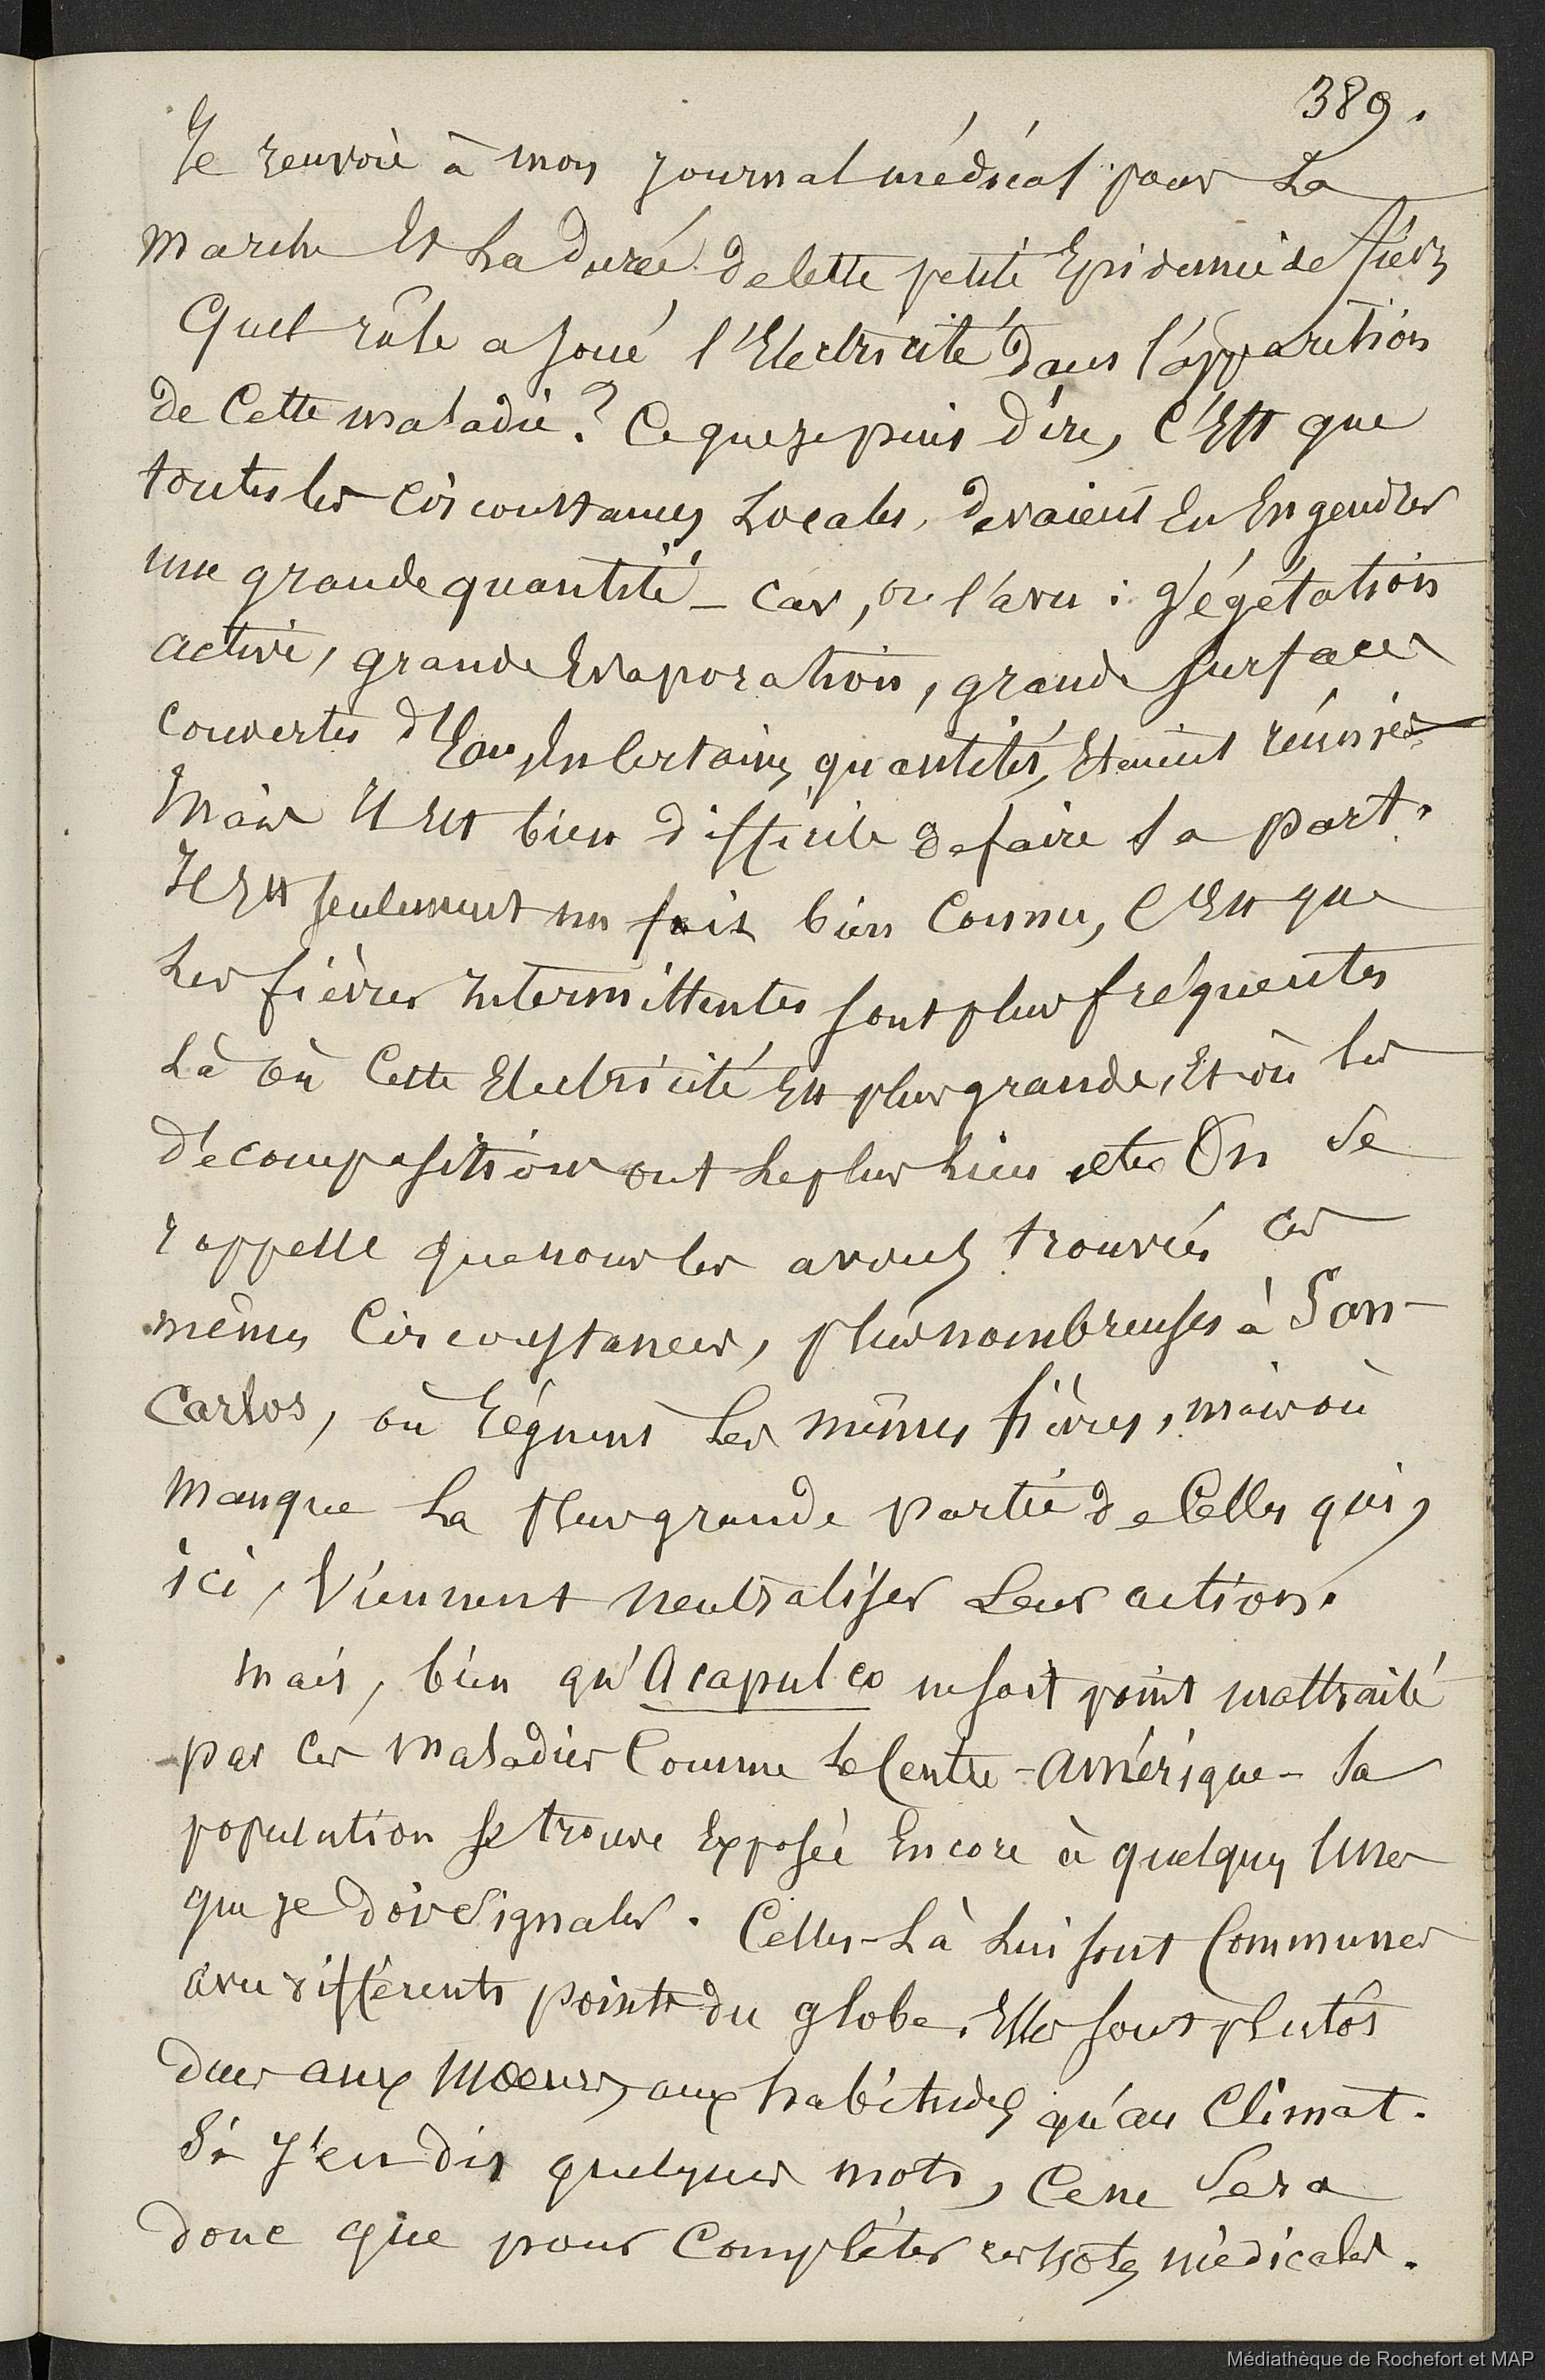 389.
Je renvoie à mon journal médical pour La
marche Et La durée de Cette petite Epidemie de fièvres
Quel rôle a joué l'Electricité dans l'apparition
de Cette maladie? Ce que je puis dire, C'Est que
toutes les Circonstances Locales, devaient En Engendrer
une grande quantité - Car, on l'a vu : Végétation
active, grande Evaporation, grande Surfaces
Couvertes d'Eau, En Certaines quantités, Etaient réunies
Mais Il Est bien difficile de faire Sa part.
Il Est Seulement un fait bien Connu, C'Est que
Les fièvres Intermittentes Sont plus fréquentes
Là où Cette Electricité Est plus grande, Et où les
décompositions ont Le plus Lieu On Se
rappelle que nous les avons trouvées ces
mêmes Circonstances, plus nombreuses à San-
Carlos, où Règnent Les mêmes fièvres, mais où
manque La plus grande partie de Celles qui,
ici, Viennent neutraliser Leur action.
Mais, bien qu'Acapulco ne soit point maltraité
par Ces Maladies Comme Le Centre-Amérique - Sa
population Se trouve Exposée Encore à quelques Unes
que je dois Signaler. Celles-Là Lui sont Communes
avec différents points du globe. Elles sont plutôt
dues aux Moeurs, aux habitudes qu'au Climat.
Si J'en dis quelques mots, Ce ne Sera
donc que pour Compléter ces Notes médicales.
Médiathèque de Rochefort et MAP